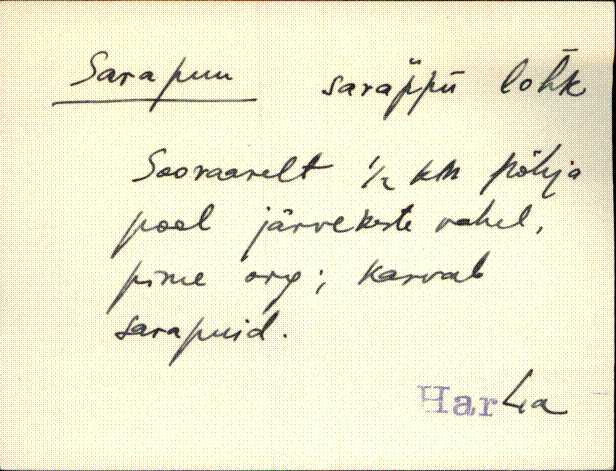 Sarapuu sarap̆pū lohk
Sooraarelt 1/2 km põhja
pool järvekeste vahel,
pime org; kasvab
sarapuid.
Harla